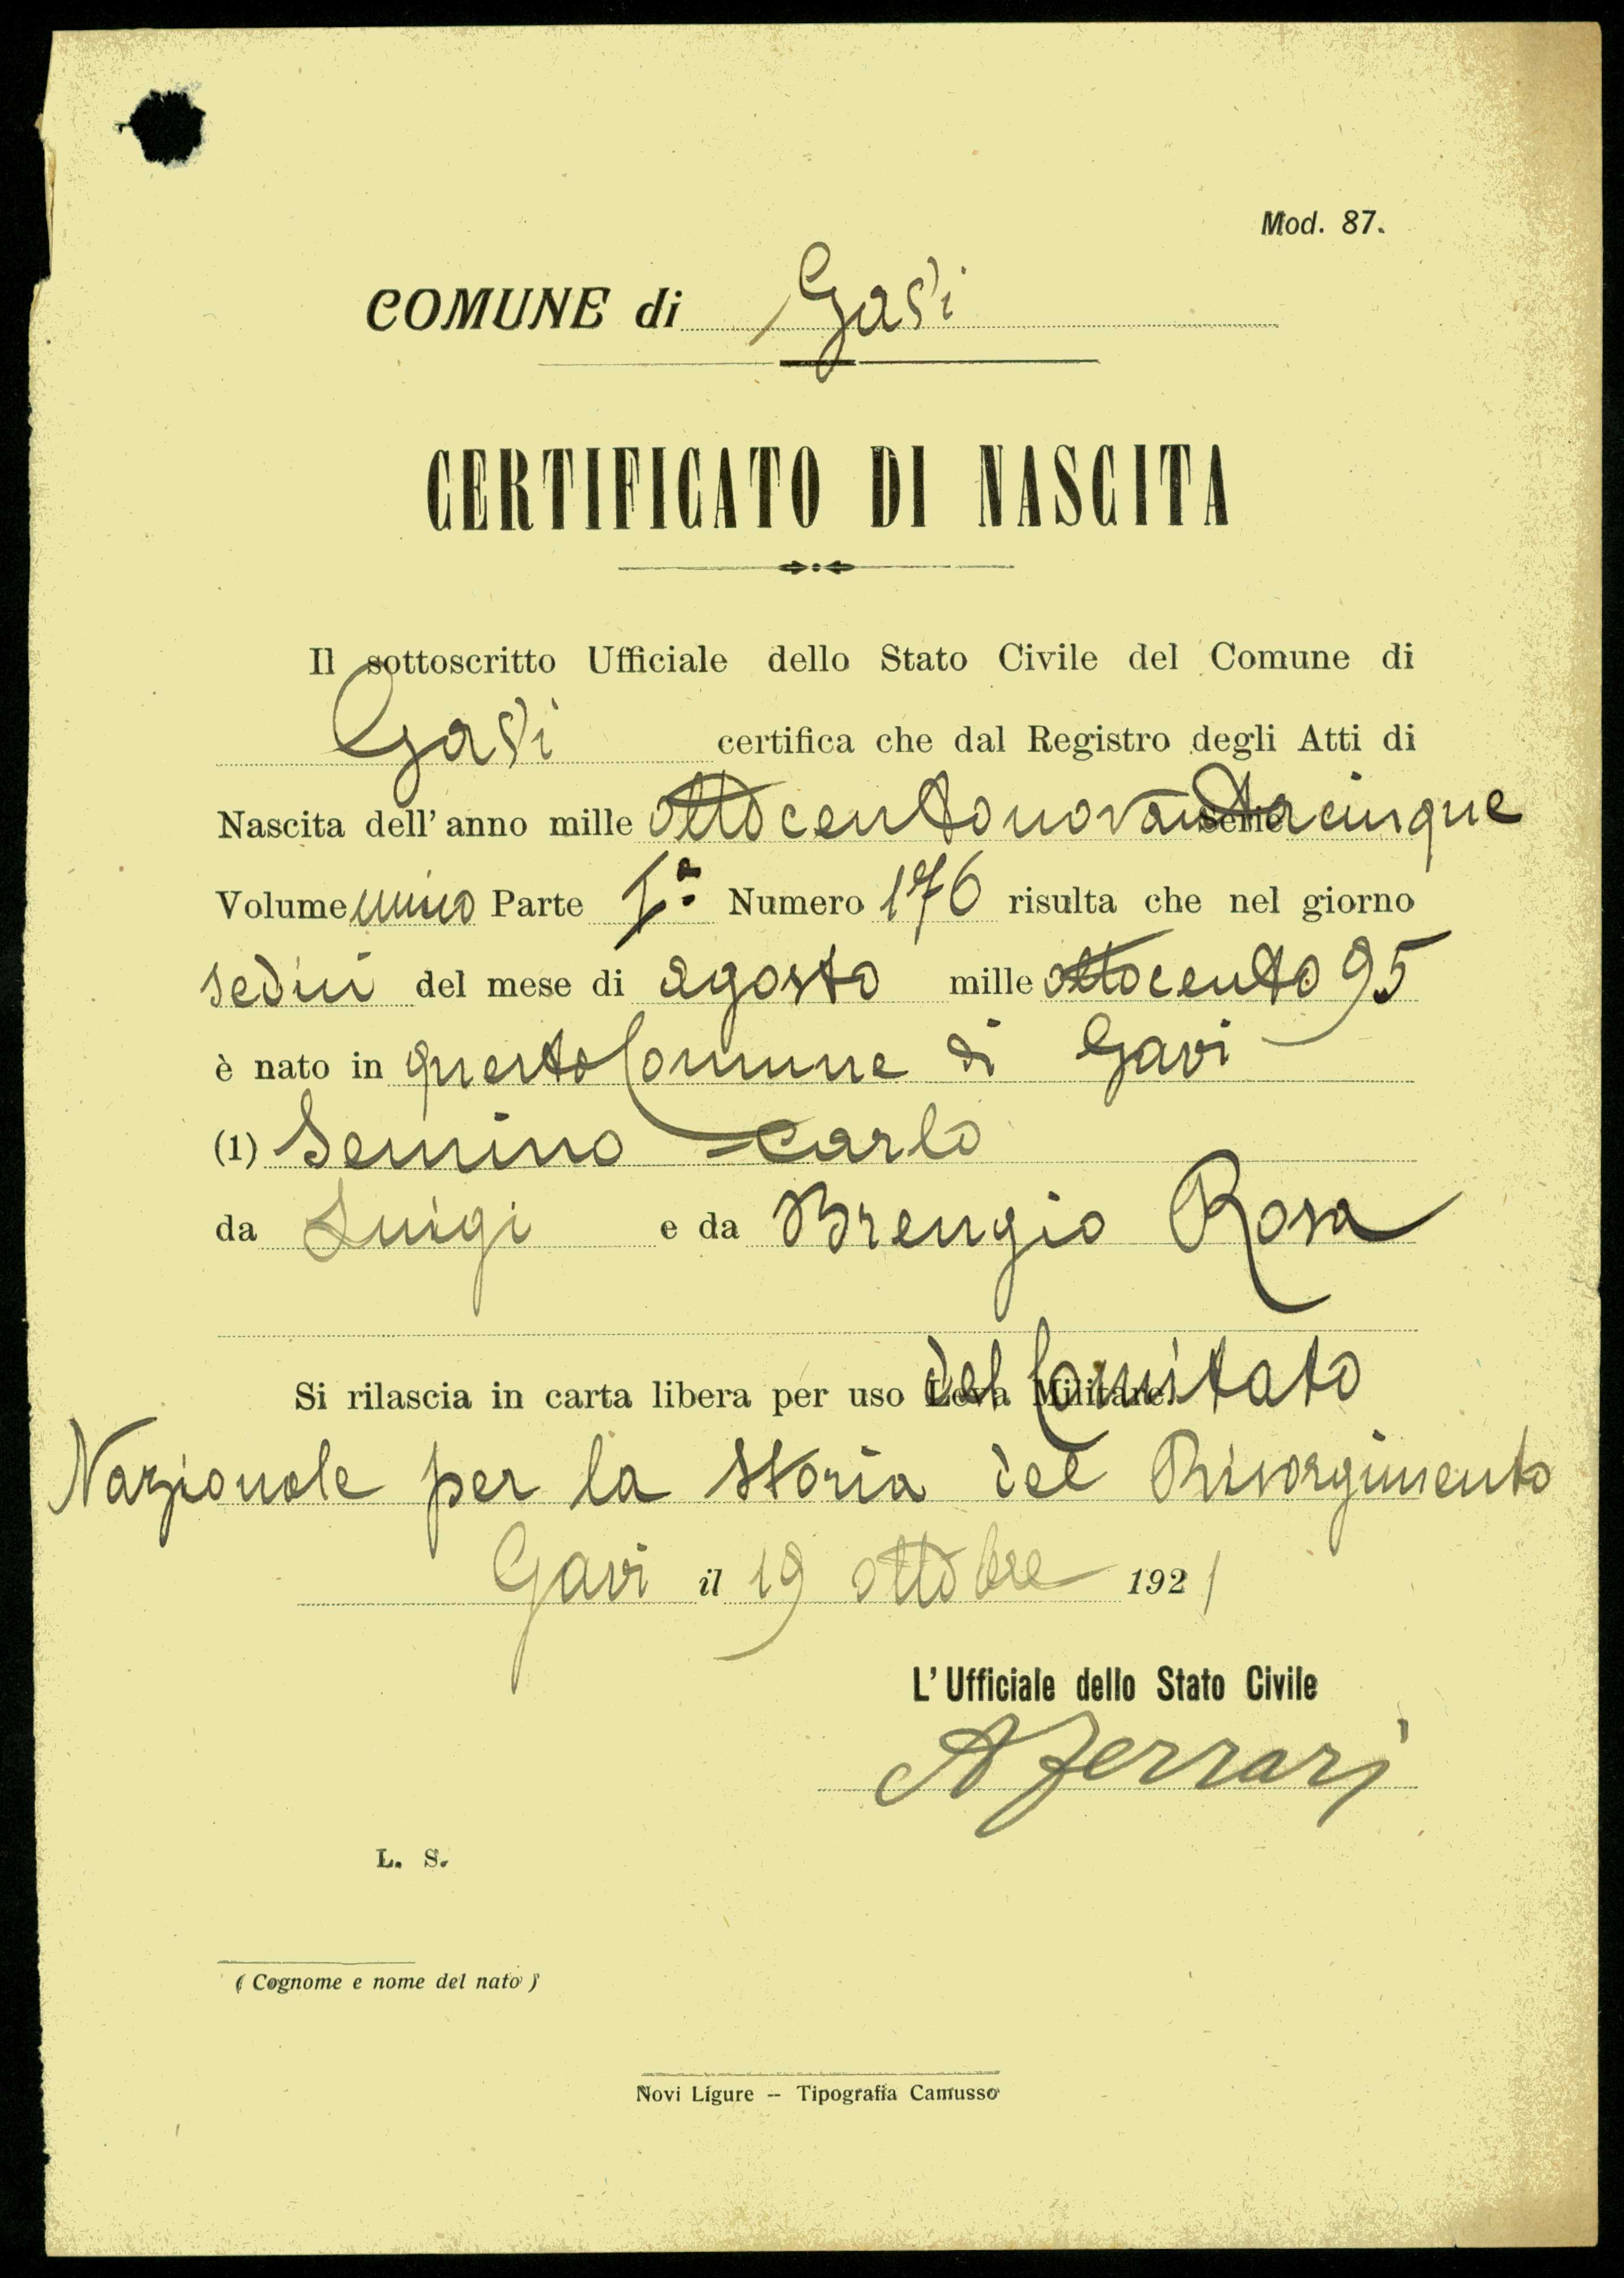 Mod. 87.
COMUNE di Gavi
CERTIFICATO DI NASCITA
Il sottoscritto Ufficiale dello Stato Civile del Comune di
Gavi certifica che dal Registro degli Atti di
Nascita dell'anno mille ottocentonovantacinque Serie
Volume unico Parte Iª Numero 176 risulta che nel giorno
sedici del mese di agosto mille ottocento 95
è nato in questo Comune di Gavi
(1) Semino Carlo
da Luigi e da Brengio Rosa
Si rilascia in carta libera per uso Leva Militare. del Comitato
Nazionale per la storia del Risorgimento
Gavi il 19 ottobre 1921
L'Ufficiale dello Stato Civile
A Ferrari
L. S.
( Cognome e nome del nato )
Novi Ligure -- Tipografia Camusso